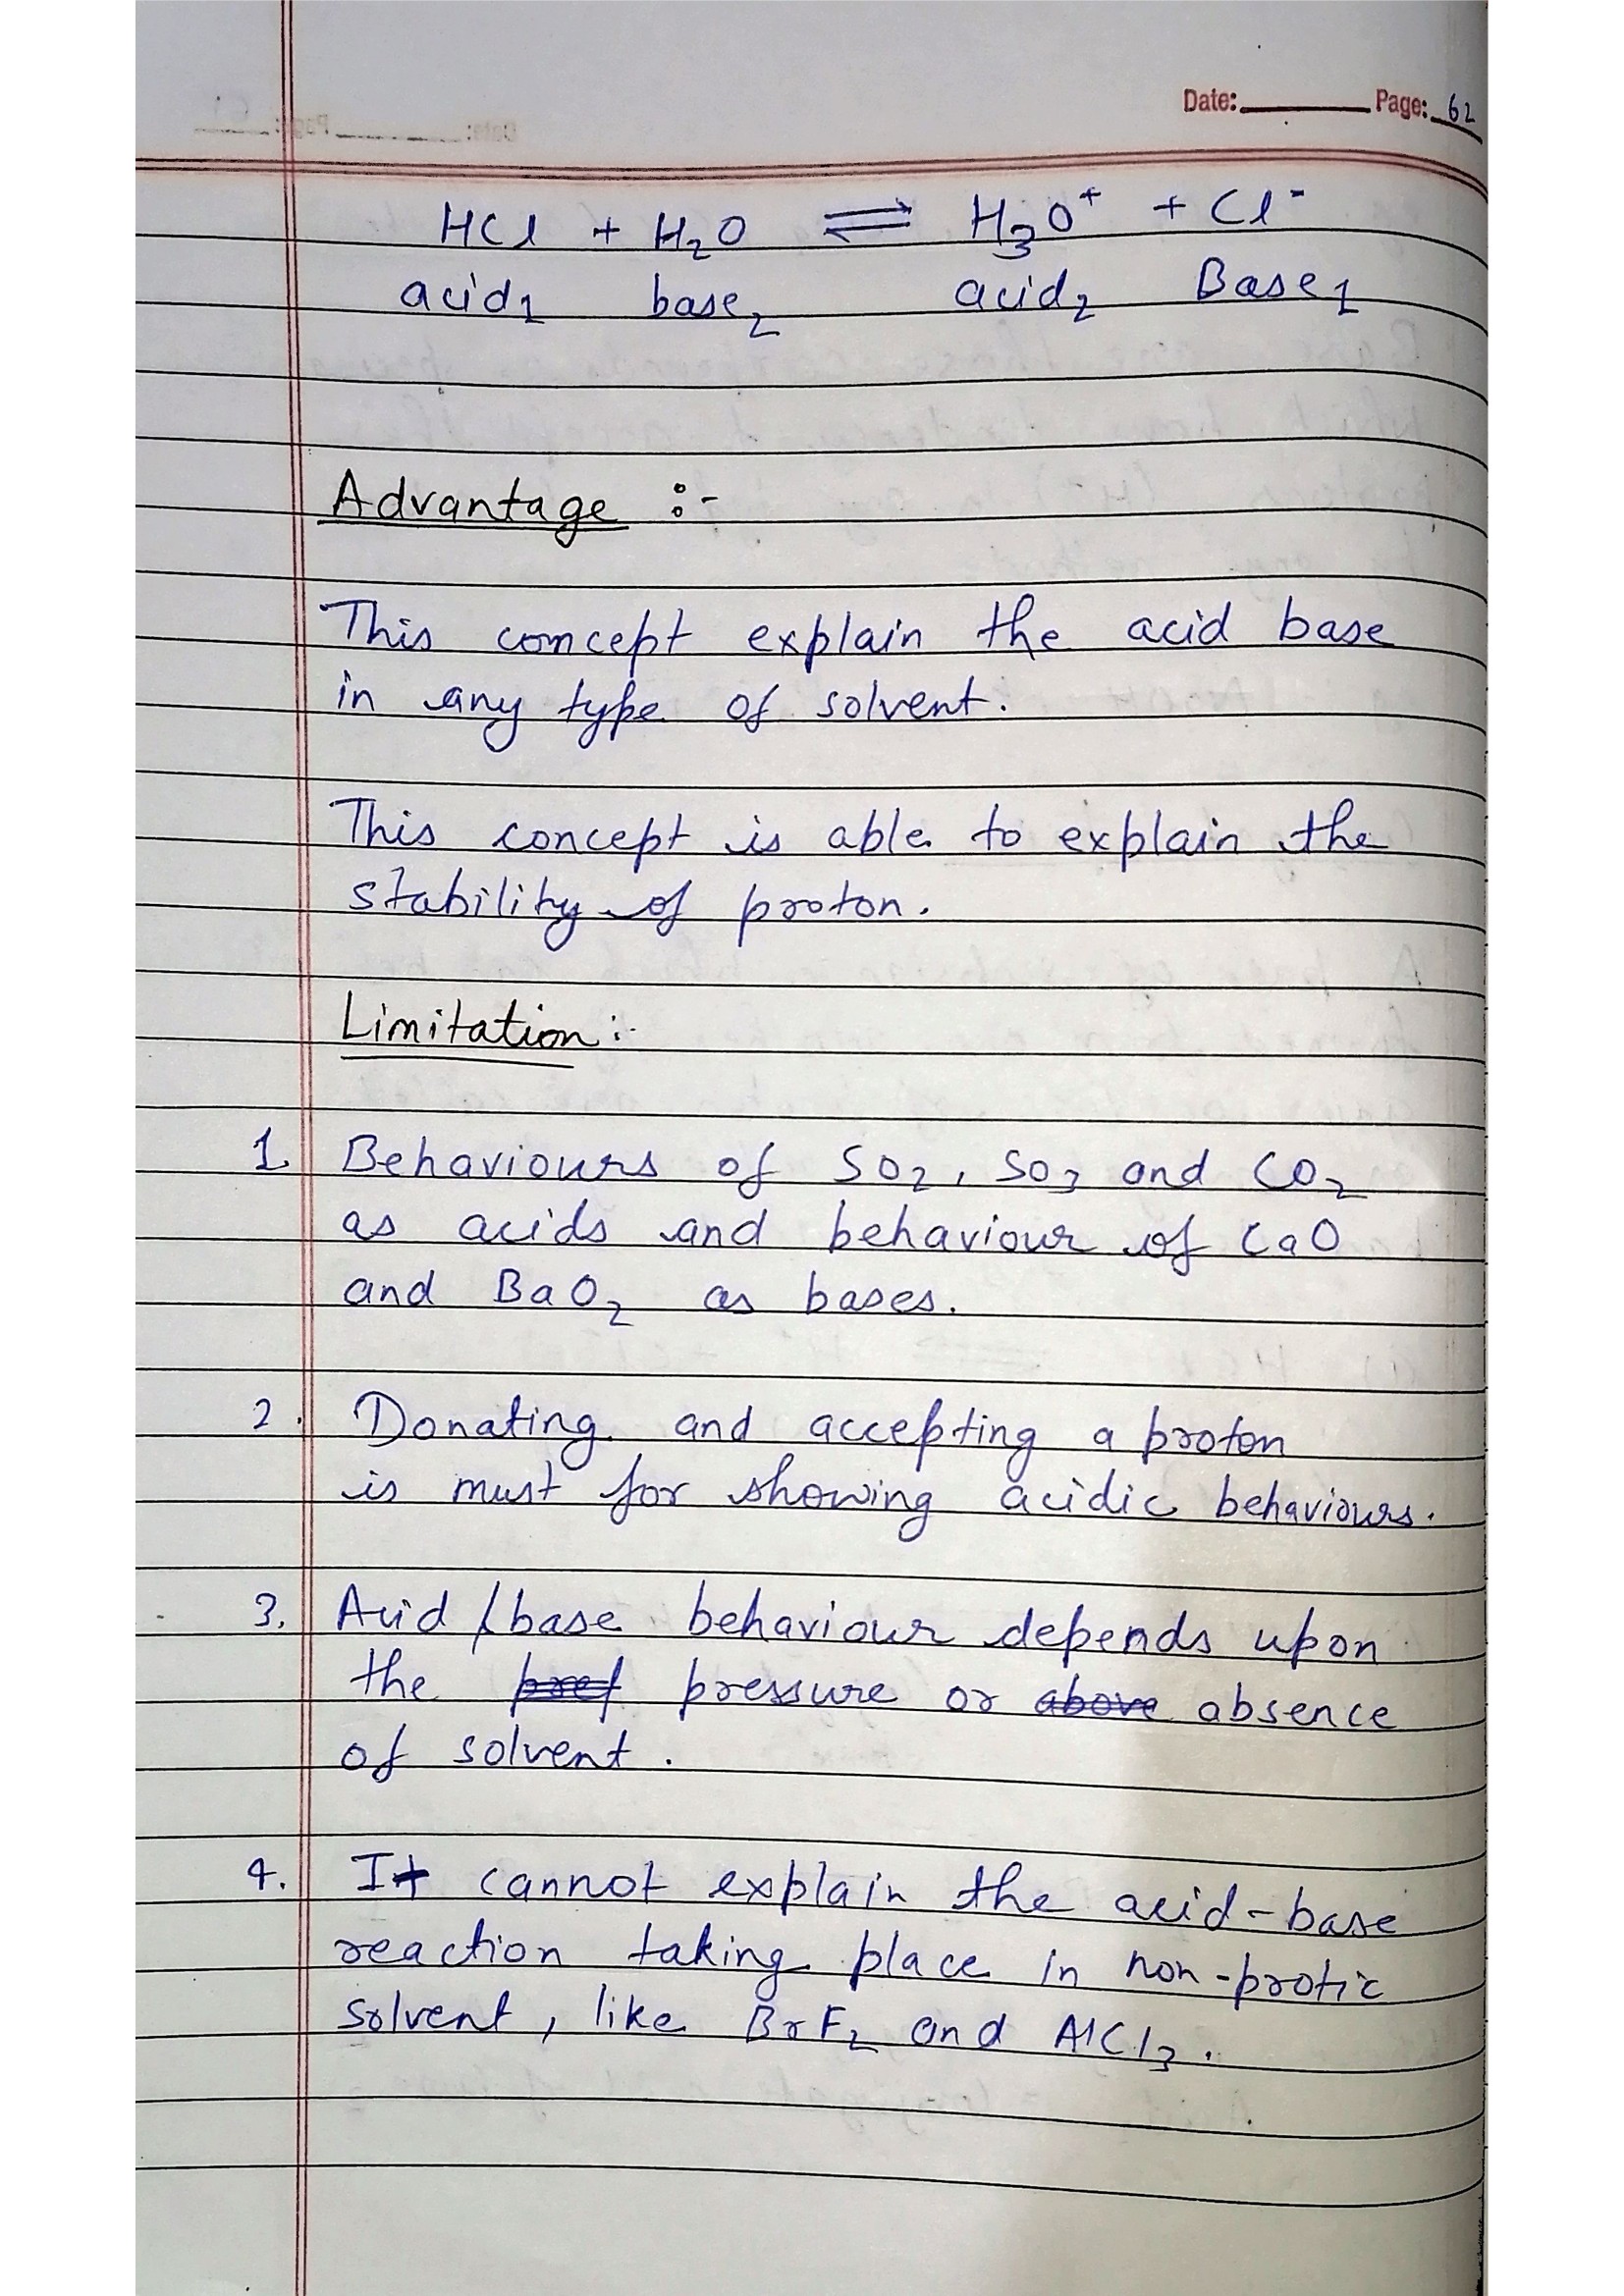 Date: Page: 62
HCl + H₂O ⇌ H₃O⁺ + Cl⁻
acid₁ base₂ acid₂ Base₁
Advantage :-
This concept explain the acid base
in any type of solvent.
This concept is able to explain the
stability of proton.
Limitation :-
1. Behaviours of SO₂, SO₃ and CO₂
as acids and behaviour of CaO
and BaO₂ as bases.
2. Donating and accepting a proton
is must for showing acidic behaviours.
3. Acid/base behaviour depends upon
the pressure or above absence
of solvent.
4. It cannot explain the acid-base
reaction taking place in non-protic
solvent, like BrF₂ and AlCl₃.